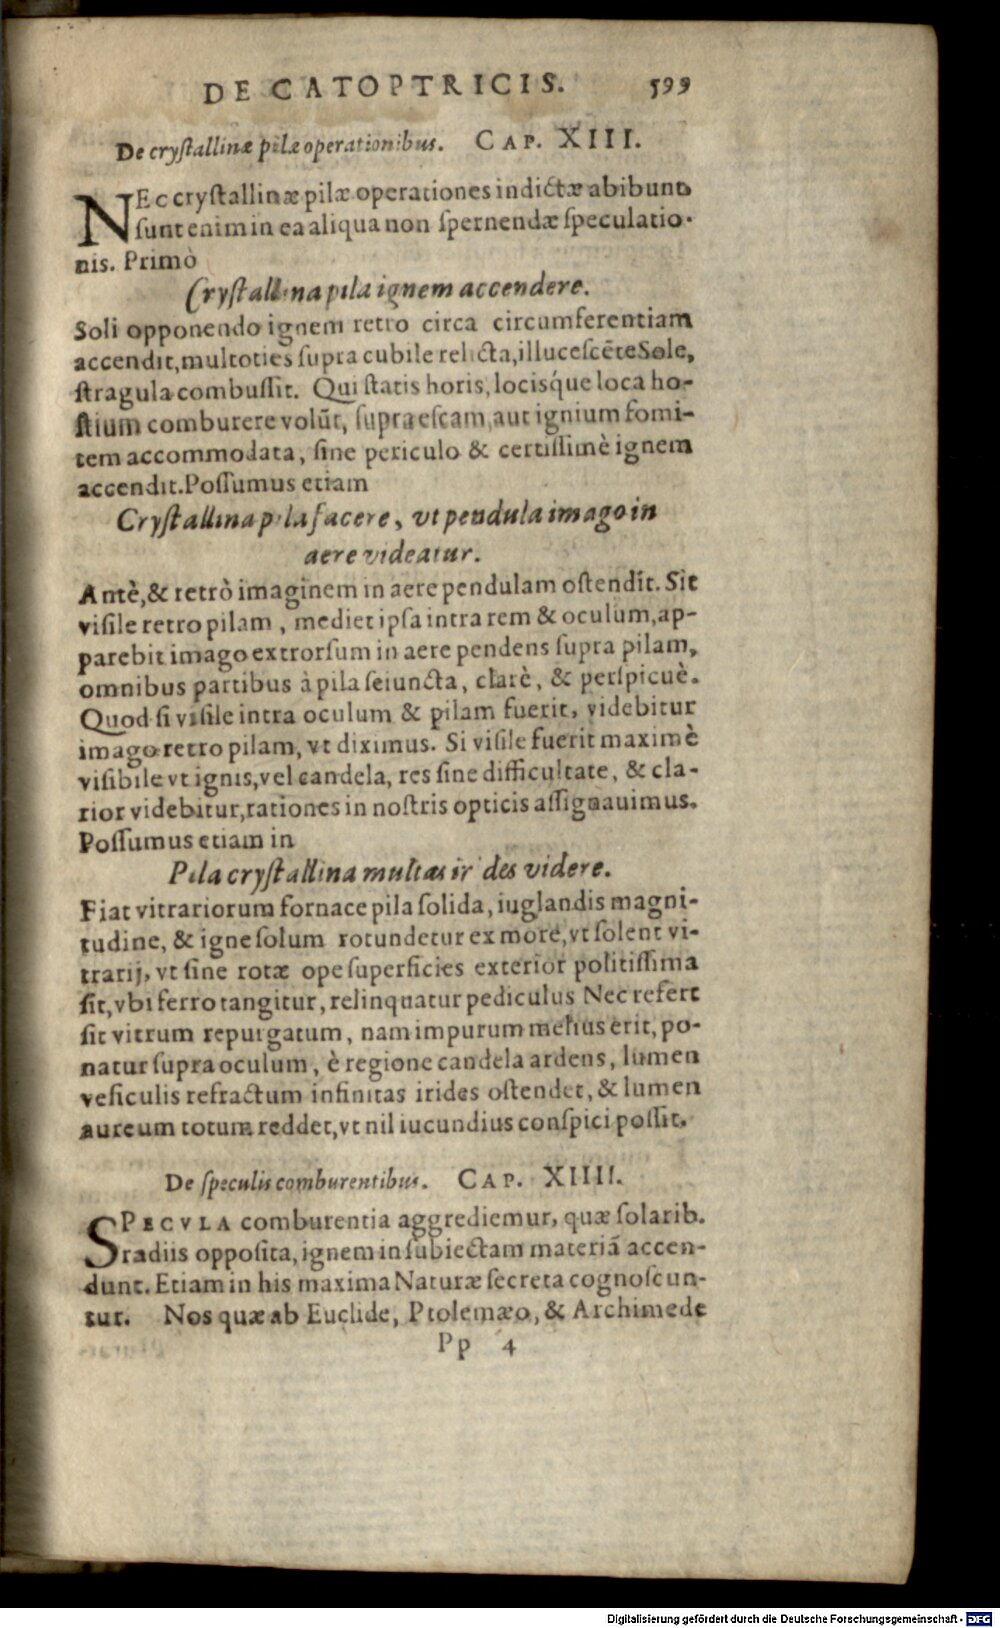 DE CATOPTRICIS. 599
De crystallinæ pilæ operationibus. CAP. XIII.
NEc crystallinæ pilæ operationes indictæ abibunt
sunt enim in ea aliqua non spernendæ speculatio-
nis. Primò
Crystallina pila ignem accendere.
Soli opponendo ignem retro circa circumferentiam
accendit, multoties supra cubile relicta, illucescẽte Sole,
stragula combussit. Qui statis horis, locisq́ue loca ho-
stium comburere volũt, supra escam, aut ignium fomi-
tem accommodata, sine periculo & certissimè ignem
accendit. Possumus etiam
Crystallina pila facere, vt pendula imago in
aere videatur.
Antè, & retrò imaginem in aere pendulam ostendit. Sit
visile retro pilam, mediet ipsa intra rem & oculum, ap-
parebit imago extrorsum in aere pendens supra pilam,
omnibus partibus à pila seiuncta, clarè, & perspicuè.
Quod si visile intra oculum & pilam fuerit, videbitur
imago retro pilam, vt diximus. Si visile fuerit maximè
visibile vt ignis, vel candela, res sine difficultate, & cla-
rior videbitur, rationes in nostris opticis assignauimus.
Possumus etiam in
Pila crystallina multas irides videre.
Fiat vitrariorum fornace pila solida, iuglandis magni-
tudine, & igne solum rotundetur ex more, vt solent vi-
trarij, vt sine rotæ ope superficies exterior politissima
sit, vbi ferro tangitur, relinquatur pediculus Nec refert
sit vitrum repurgatum, nam impurum melius erit, po-
natur supra oculum, è regione candela ardens, lumen
vesiculis refractum infinitas irides ostendet, & lumen
aureum totum reddet, vt nil iucundius conspici possit.
De speculis comburentibus. CAP. XIIII.
SPECVLA comburentia aggrediemur, quæ solarib.
radiis opposita, ignem in subiectam materiã accen-
dunt. Etiam in his maxima Naturæ secreta cognoscun-
tur. Nos quæ ab Euclide, Ptolemæo, & Archimede
Pp 4
Digitalisierung gefördert durch die Deutsche Forschungsgemeinschaft - DFG